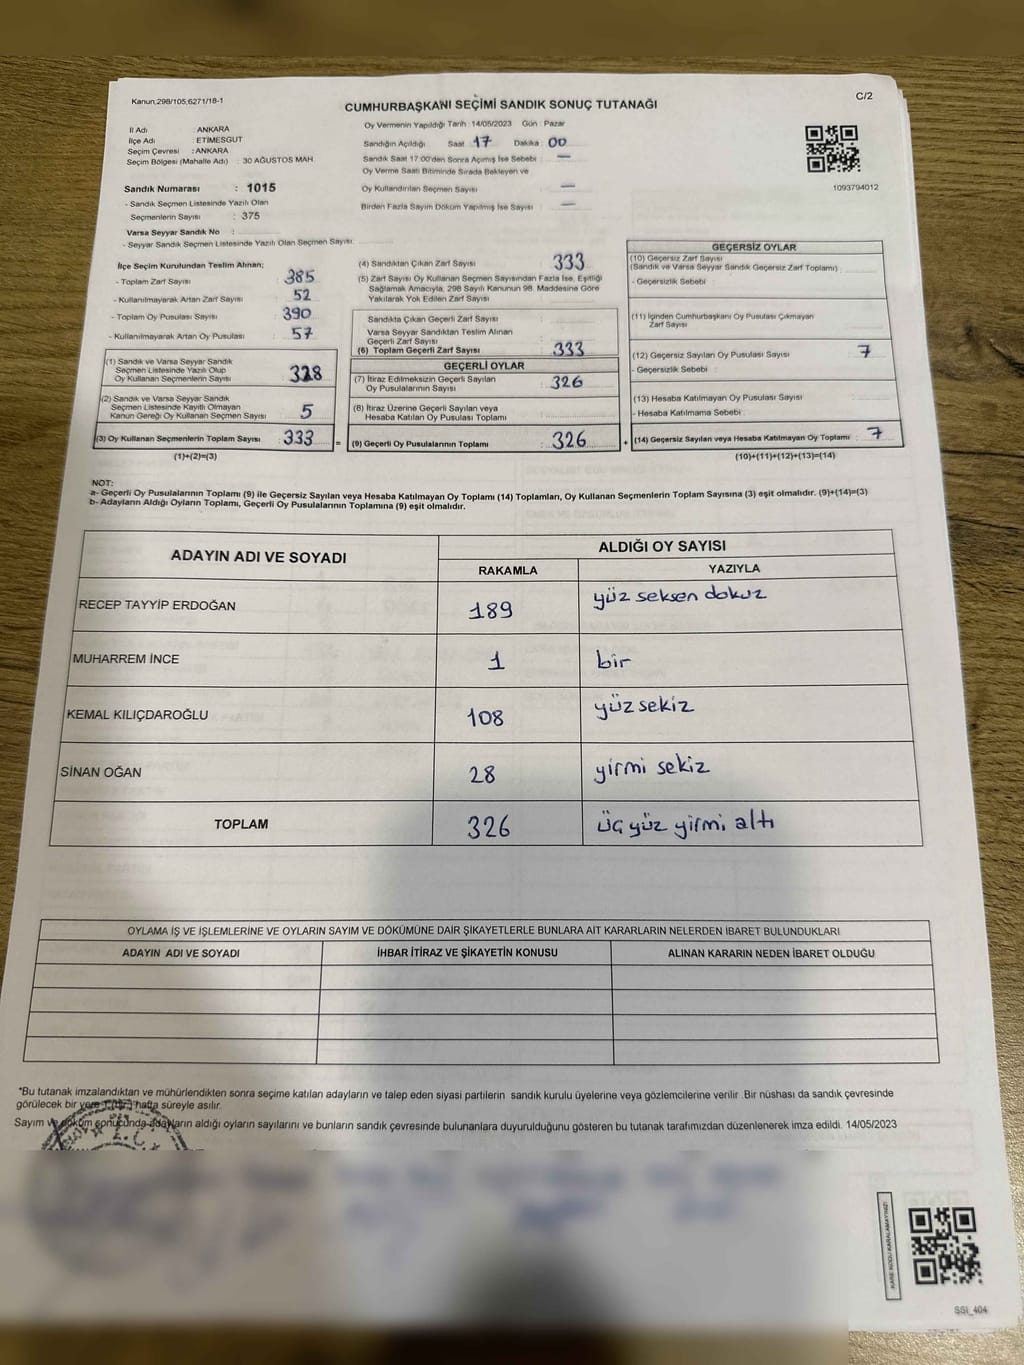 Kanun,298/105,6271/18-1
C/2
CUMHURBAŞKANI SEÇİMİ SANDIK SONUÇ TUTANAĞI
İl Adı : ANKARA
İlçe Adı : ETİMESGUT
Seçim Çevresi : ANKARA
Seçim Bölgesi (Mahalle Adı) : 30 AĞUSTOS MAH.
Sandık Numarası : 1015
- Sandık Seçmen Listesinde Yazılı Olan
Seçmenlerin Sayısı : 375
Varsa Seyyar Sandık No :
- Seyyar Sandık Seçmen Listesinde Yazılı Olan Seçmen Sayısı
Oy Vermenin Yapıldığı Tarih :14/05/2023 Gün : Pazar
Sandığın Açıldığı Saat 17 Dakika 00
Sandık Saat 17:00'den Sonra Açımış İse Sebebi : —
Oy Verme Saati Bitiminde Sırada Bekleyen ve
Oy Kullandırılan Seçmen Sayısı : —
Birden Fazla Sayım Döküm Yapılmış İse Sayısı : —
1093794012
İlçe Seçim Kurulundan Teslim Alınan;
- Toplam Zarf Sayısı : 385
- Kullanılmayarak Artan Zarf Sayısı : 52
- Toplam Oy Pusulası Sayısı : 390
- Kullanılmayarak Artan Oy Pusulası : 57
(1) Sandık ve Varsa Seyyar Sandık
Seçmen Listesinde Yazılı Olup
Oy Kullanan Seçmenlerin Sayısı : 328
(2) Sandık ve Varsa Seyyar Sandık
Seçmen Listesinde Kayıtlı Olmayan
Kanun Gereği Oy Kullanan Seçmen Sayısı : 5
(3) Oy Kullanan Seçmenlerin Toplam Sayısı : 333 =
(1)+(2)=(3)
(4) Sandıktan Çıkan Zarf Sayısı : 333
(5) Zarf Sayısı Oy Kullanan Seçmen Sayısından Fazla İse, Eşitliği
Sağlamak Amacıyla, 298 Sayılı Kanunun 98. Maddesine Göre
Yakılarak Yok Edilen Zarf Sayısı :
Sandıkta Çıkan Geçerli Zarf Sayısı :
Varsa Seyyar Sandıktan Teslim Alınan
Geçerli Zarf Sayısı :
(6) Toplam Geçerli Zarf Sayısı : 333
GEÇERLİ OYLAR
(7) İtiraz Edilmeksizin Geçerli Sayılan
Oy Pusulalarının Sayısı : 326
(8) İtiraz Üzerine Geçerli Sayılan veya
Hesaba Katılan Oy Pusulaları Toplamı :
(9) Geçerli Oy Pusulalarının Toplamı : 326 +
GEÇERSİZ OYLAR
(10) Geçersiz Zarf Sayısı
(Sandık ve Varsa Seyyar Sandık Geçersiz Zarf Toplamı) :
- Geçersizlik Sebebi :
(11) İçinden Cumhurbaşkanı Oy Pusulası Çıkmayan
Zarf Sayısı :
(12) Geçersiz Sayılan Oy Pusulası Sayısı : 7
- Geçersizlik Sebebi :
(13) Hesaba Katılmayan Oy Pusulası Sayısı :
- Hesaba Katılmama Sebebi :
(14) Geçersiz Sayılan veya Hesaba Katılmayan Oy Toplamı : 7
(10)+(11)+(12)+(13)=(14)
NOT:
a- Geçerli Oy Pusulalarının Toplamı (9) ile Geçersiz Sayılan veya Hesaba Katılmayan Oy Toplamı (14) Toplamları, Oy Kullanan Seçmenlerin Toplam Sayısına (3) eşit olmalıdır. (9)+(14)=(3)
b- Adayların Aldığı Oyların Toplamı, Geçerli Oy Pusulalarının Toplamına (9) eşit olmalıdır.
ADAYIN ADI VE SOYADI
ALDIĞI OY SAYISI
RAKAMLA YAZIYLA
RECEP TAYYİP ERDOĞAN 189 yüz seksen dokuz
MUHARREM İNCE 1 bir
KEMAL KILIÇDAROĞLU 108 yüz sekiz
SİNAN OĞAN 28 yirmi sekiz
TOPLAM 326 üç yüz yirmi altı
OYLAMA İŞ VE İŞLEMLERİNE VE OYLARIN SAYIM VE DÖKÜMÜNE DAİR ŞİKAYETLERLE BUNLARA AİT KARARLARIN NELERDEN İBARET BULUNDUKLARI
ADAYIN ADI VE SOYADI İHBAR İTİRAZ VE ŞİKAYETİN KONUSU ALINAN KARARIN NEDEN İBARET OLDUĞU
*Bu tutanak imzalandıktan ve mühürlendikten sonra seçime katılan adayların ve talep eden siyasi partilerin sandık kurulu üyelerine veya gözlemcilerine verilir. Bir nüshası da sandık çevresinde
görülecek bir yere 1 (bir) hafta süreyle asılır.
Sayım ve döküm sonucunda adayların aldığı oyların sayılarını ve bunların sandık çevresinde bulunanlara duyurulduğunu gösteren bu tutanak tarafımızdan düzenlenerek imza edildi. 14/05/2023
T.C.
KARE KODU KARALAMAYINIZ!
SSI_404